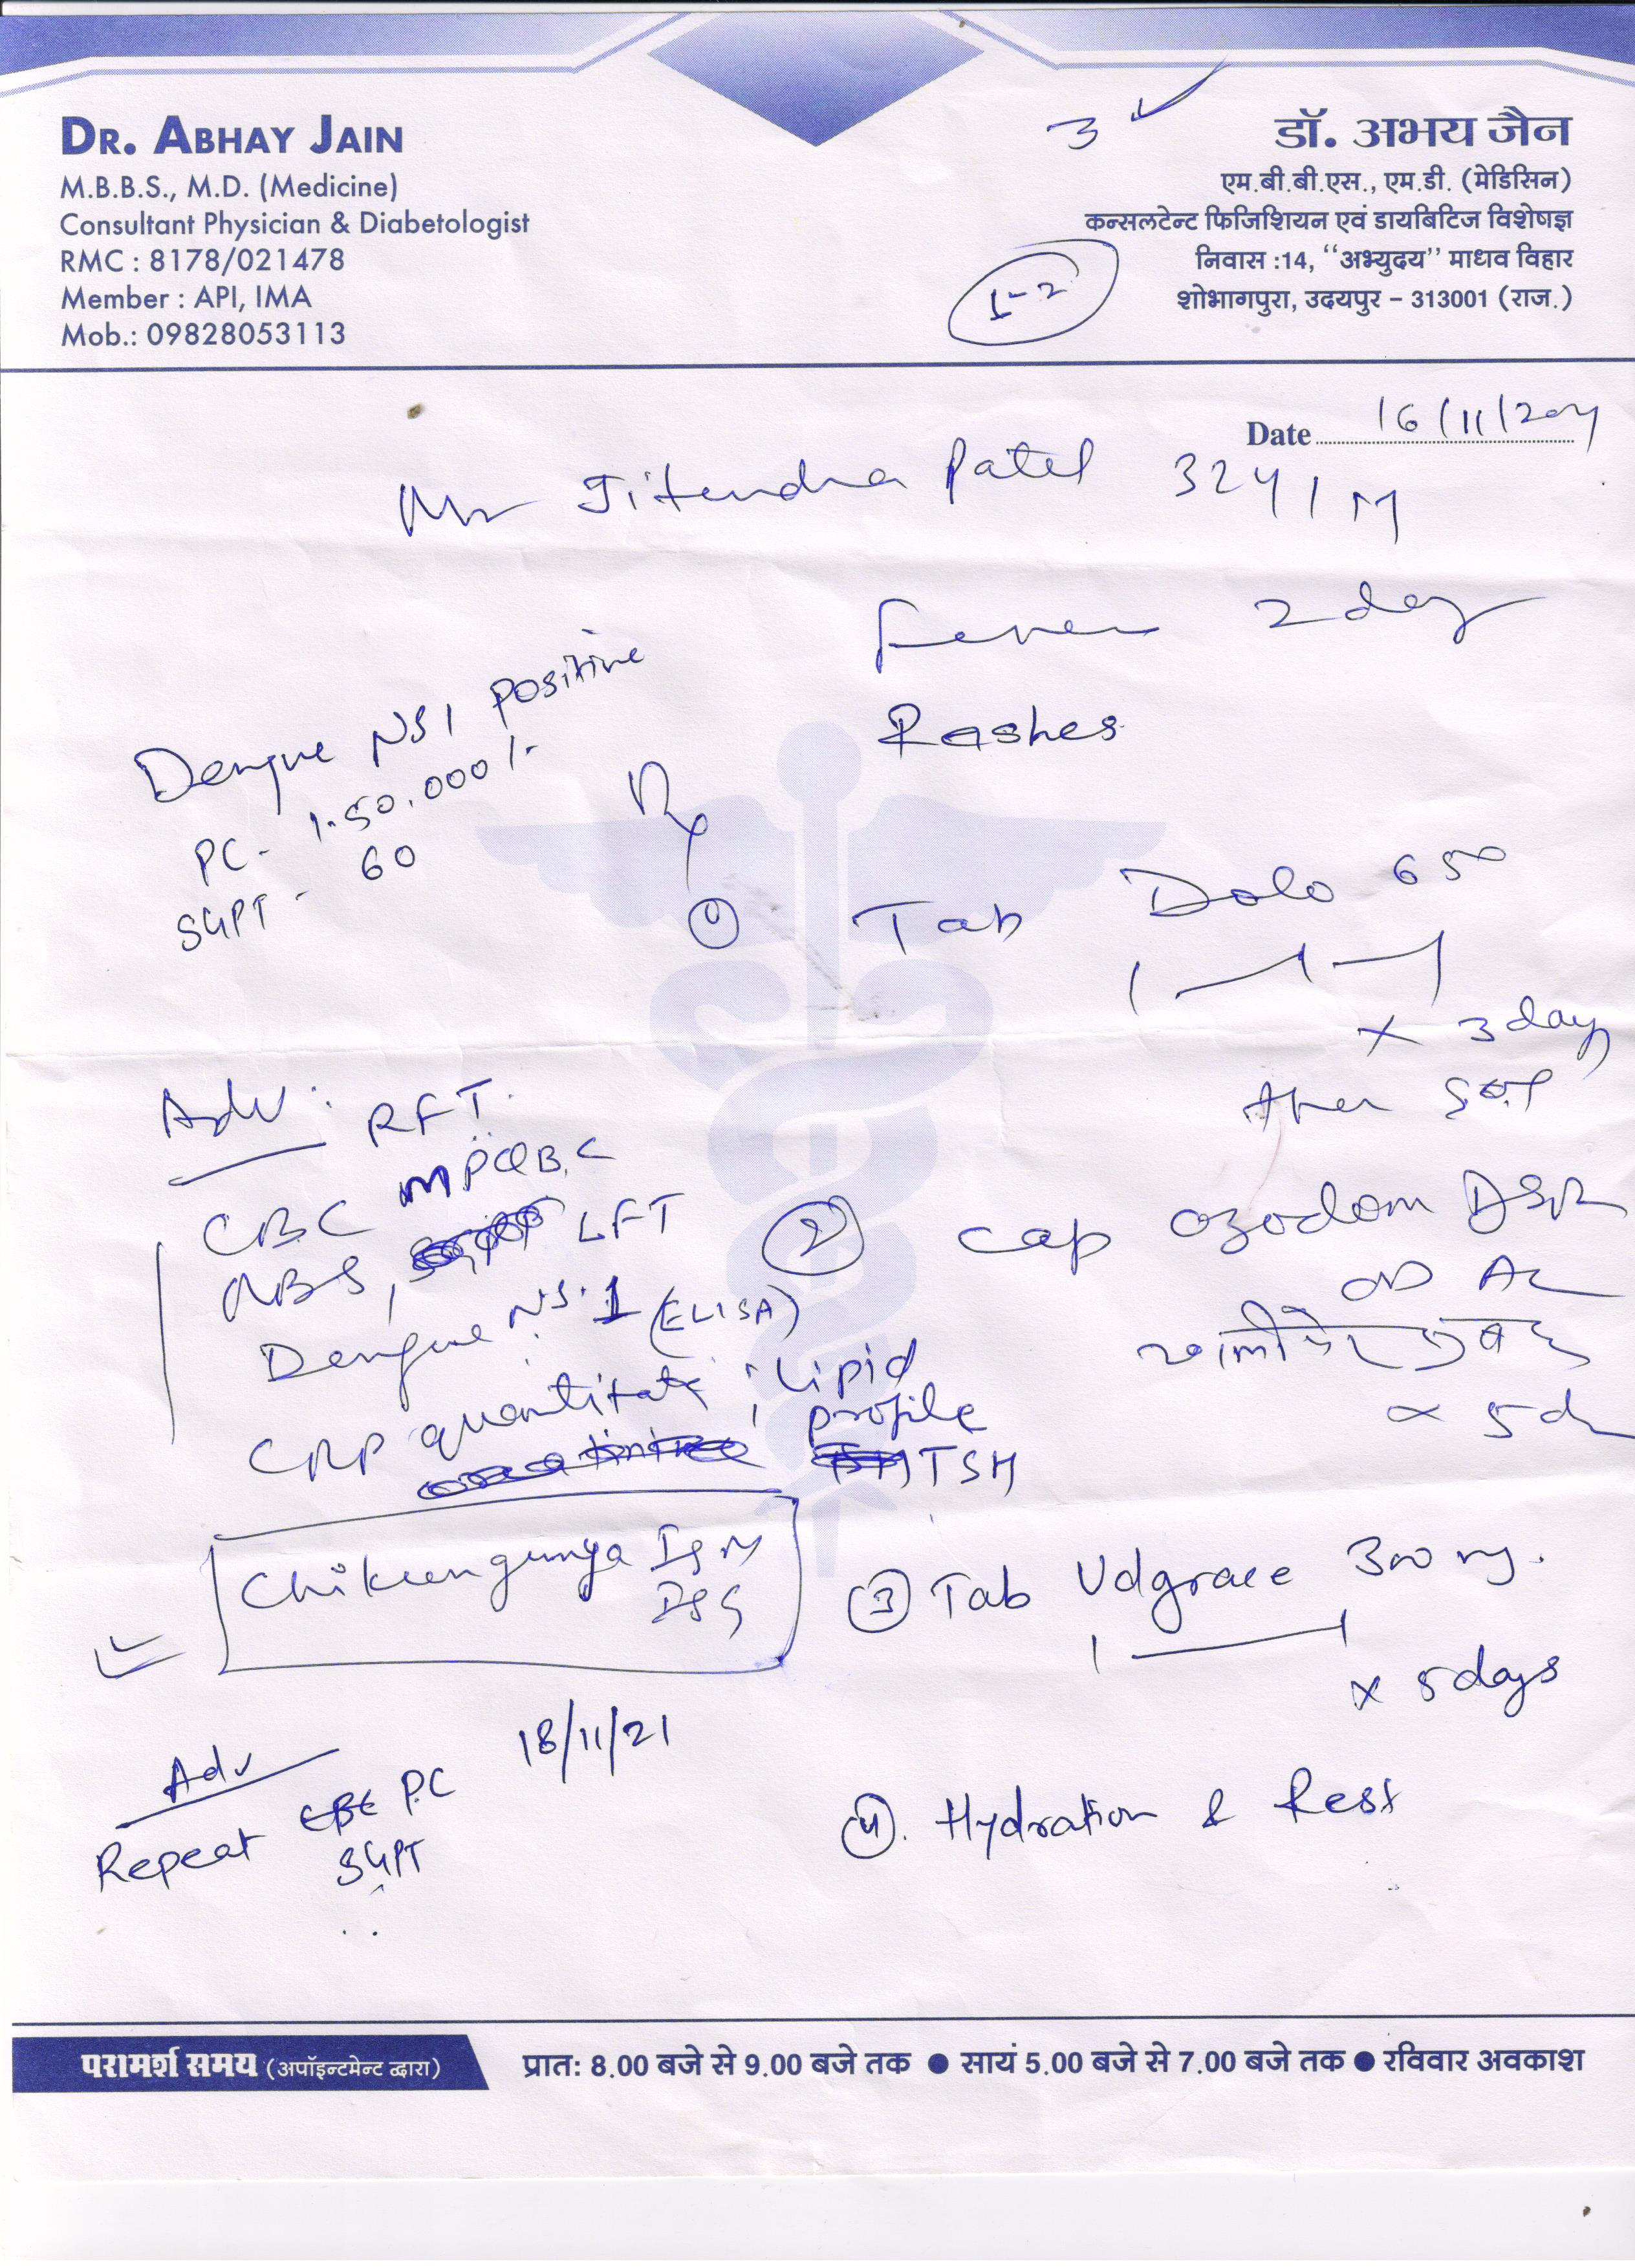 DR. ABHAY JAIN
M.B.B.S., M.D. (Medicine)
Consultant Physician & Diabetologist
RMC : 8178/021478
Member : API, IMA
Mob.: 09828053113
3
1-2
डॉ. अभय जैन
एम.बी.बी.एस., एम.डी. (मेडिसिन)
कन्सलटेन्ट फिजिशियन एवं डायबिटिज विशेषज्ञ
निवास :14, “अभ्युदय” माधव विहार
शोभागपुरा, उदयपुर – 313001 (राज.)
Date 16/11/2021
Mr Jitendra Patel 32y/M
Fever 2 day
Rashes
Dengue NS1 Positive
PC- 1.50.000/-
SGPT - 60
Rx
① Tab Dolo 650
1 — 1 — 1
x 3 days
then SOS
Adv: RFT.
CBC MPQBC
LFT
Dengue NS.1 (ELISA)
CRP quantitate, Lipid
profile
TSH
Chikungunya IgM
IgG
② Cap Ozodom DSR
OD AC
खाली पेट सुबह
x 5d
③ Tab Udgrace 300 mg.
1 — 1
x 5 days
④. Hydration & Rest
Adv 18/11/21
Repeat CBC P.C
SGPT
परामर्श समय (अपॉइन्टमेन्ट द्वारा)
प्रात: 8.00 बजे से 9.00 बजे तक ● सायं 5.00 बजे से 7.00 बजे तक ● रविवार अवकाश